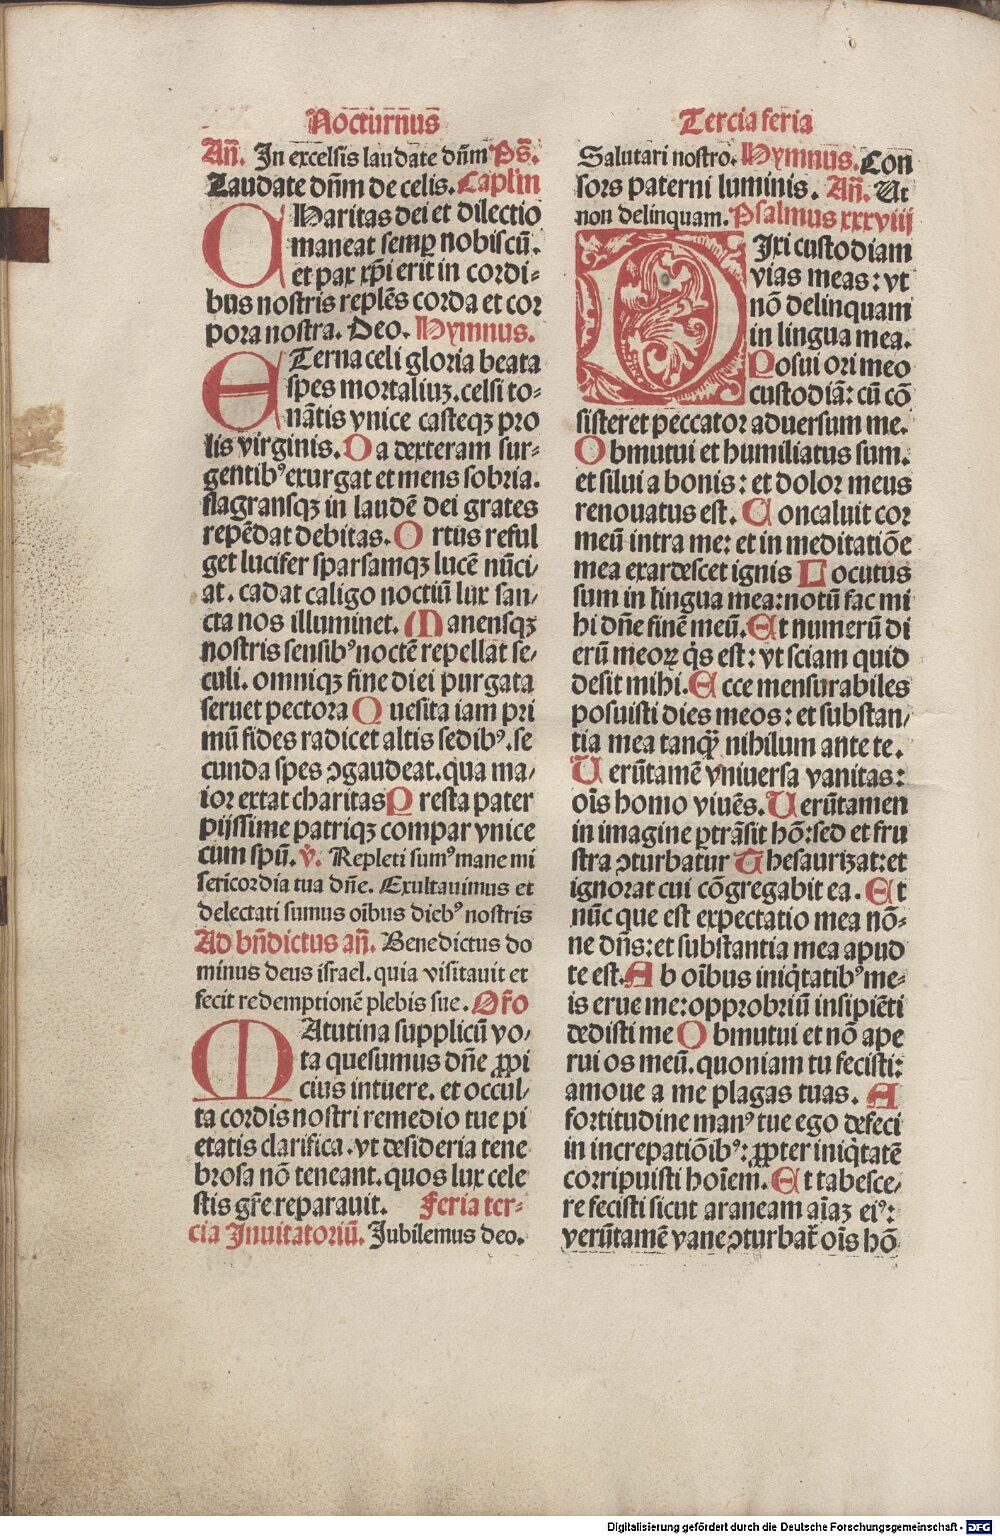 Nocturnus
Añ. In excelsis laudate dñm Ps̃.
Laudate dñm de celis. Caplm̃
CHaritas dei et dilectio
maneat semꝑ nobiscũ.
et pax xp̃i erit in cordi⸗
bus nostris replẽs corda et cor
pora nostra. Deo. Hymnus.
ETerna celi gloria beata
spes mortaliuꝫ. celsi to⸗
nãtis vnice casteqꝫ pro
lis virginis. Da dexteram sur⸗
gentibꝰ exurgat et mens sobria.
flagransqꝫ in laudẽ dei grates
repẽdat debitas. Ortus reful
get lucifer sparsamqꝫ lucẽ nũci/
at. cadat caligo noctiũ lux san/
cta nos illuminet. Manensqꝫ
nostris sensibꝰ noctẽ repellat se/
culi. omniqꝫ fine diei purgata
seruet pectora Quesita iam pri
mũ fides radicet altis sedibꝰ. se
cunda spes ↄgaudeat. qua ma/
ior extat charitas Presta pater
pijssime patriqꝫ compar vnice
cum spũ. ℣. Repleti sumꝰ mane mi
sericordia tua dñe. Exultauimus et
delectati sumus oĩbus diebꝰ nostris
Ad bñdictus añ. Benedictus do
minus deus israel. quia visitauit et
fecit redemptionẽ plebis sue. Or̃o
MAtutina supplicũ vo/
ta quesumus dñe ꝓpi
cius intuere. et occul/
ta cordis nostri remedio tue pi
etatis clarifica. vt desideria tene
brosa nõ teneant. quos lux cele
stis gr̃e reparauit. Feria ter⸗
cia Inuitatoriũ. Jubilemus deo.
Tercia feria
Salutari nostro. Hymnus. Con
sors paterni luminis. Añ. Ut
non delinquam. Psalmus xxxviij
DIxi custodiam
vias meas: vt
nõ delinquam
in lingua mea.
Posui ori meo
custodiã: cũ cõ
sisteret peccator aduersum me.
Obmutui et humiliatus sum.
et silui a bonis: et dolor meus
renouatus est. Concaluit cor
meũ intra me: et in meditatiõe
mea exardescet ignis Locutus
sum in lingua mea: notũ fac mi
hi dñe finẽ meũ. Et numerũ di
erũ meoꝝ q̇s est: vt sciam quid
desit mihi. Ecce mensurabiles
posuisti dies meos: et substan/
tia mea tanq̃ȝ nihilum ante te.
Uerũtamẽ vniuersa vanitas:
oĩs homo viuẽs. Uerũtamen
in imagine ꝑtrãsit hõ: sed et fru
stra ↄturbatur Thesaurizat: et
ignorat cui cõgregabit ea. Et
nũc que est expectatio mea nõ⸗
ne dñs: et substantia mea apud
te est. Ab oĩbus iniq̇tatibꝰ me⸗
is erue me: opprobriũ insipiẽti
dedisti me Obmutui et nõ ape
rui os meũ. quoniam tu fecisti:
amoue a me plagas tuas. A
fortitudine manꝰ tue ego defeci
in increpatiõibꝰ: ꝓpter iniq̇tatẽ
corripuisti hoĩem. Et tabesce/
re fecisti sicut araneam aĩaꝫ eiꝰ:
verũtamẽ vane ↄturbat̃ oĩs hõ
Digitalisierung gefördert durch die Deutsche Forschungsgemeinschaft - DFG